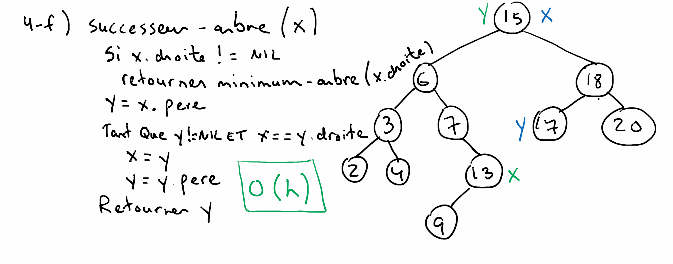 4-f) successeur-arbre (x)
Si x.droite != NIL
retourner minimum-arbre (x.droite)
Y = x.pere
Tant Que y!=NIL ET x==y.droite
x = y
y = y.pere
Retourner y
O(h)
Y 15 X
6 18
3 7 Y 17 20
2 4 13 X
9